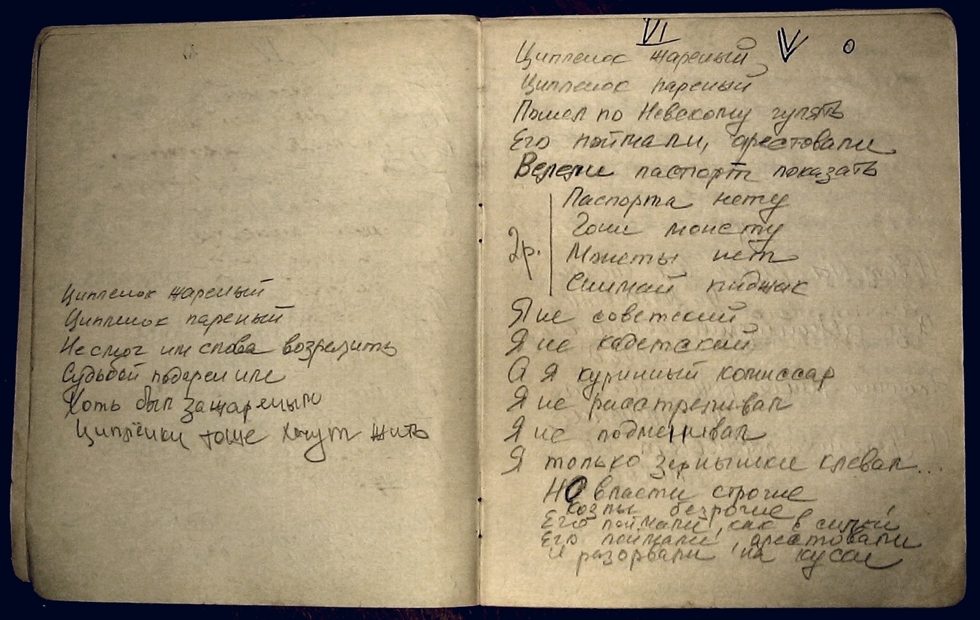 Ципленок жареный
Ципленок пареный
Не смог им слова возразить
Судьбой
Хоть был зажареным
Циплёнки тоже хочут жить
VI V 0
Ципленок жареный
Ципленок пареный
Пошел по Невскому гулять
Его поймали, арестовали
Велели паспорт показать
Паспорта нету
Гони монету
2р. Монеты нет
Снимай пиджак
Я не советский
Я не кадетский
А я куриный комиссар
Я не расстреливал
Я не
Я только зернышки клевал...
Но власти строгие
козлы безрогие
Его поймали, как в силки
Его поймали, арестовали
И разорвали на куски